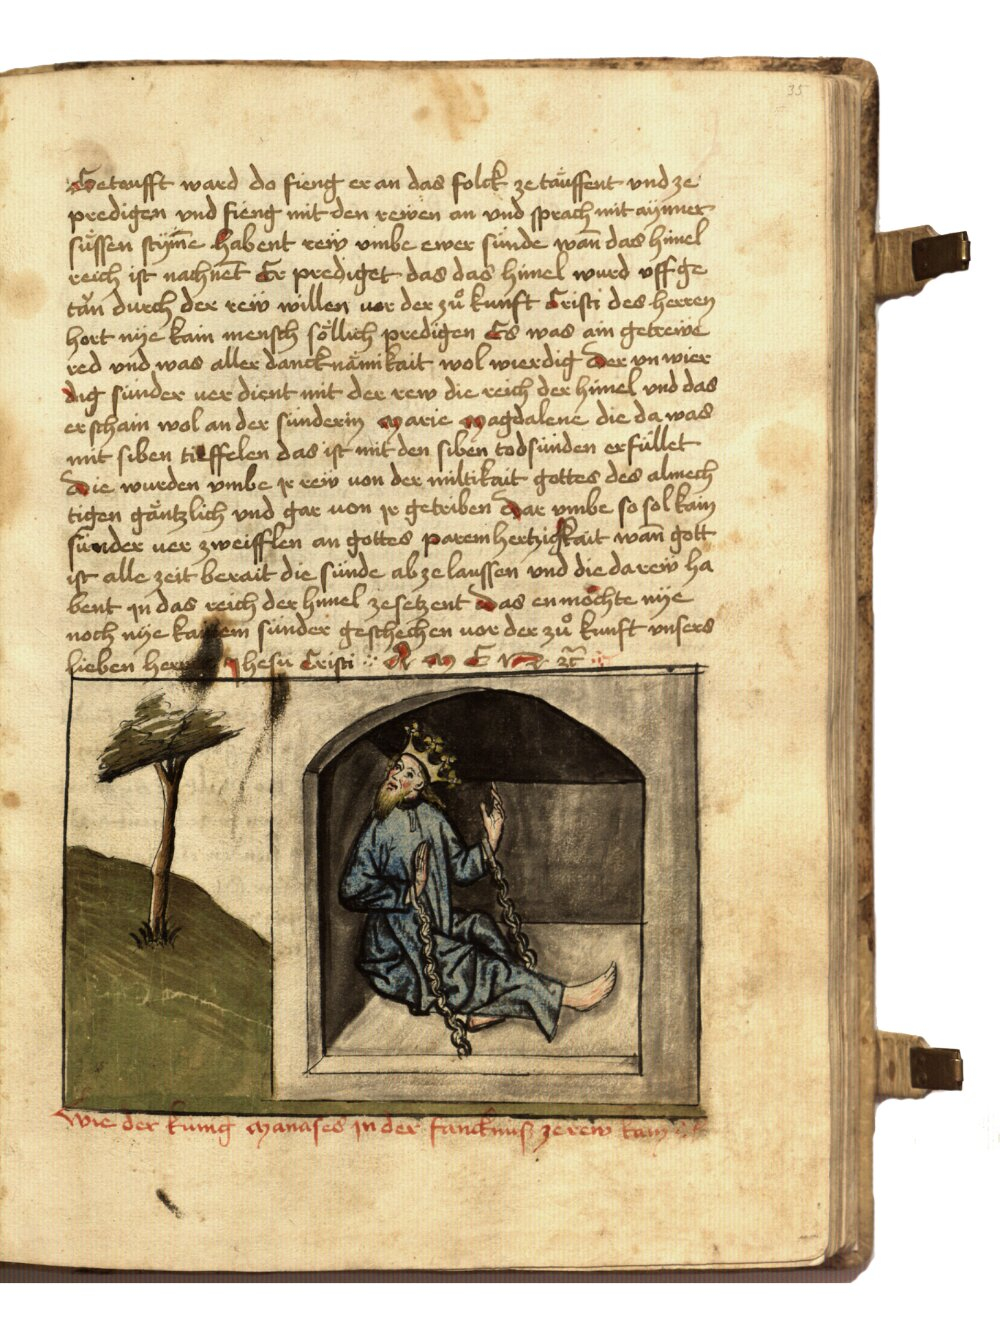 35
Geteufft ward do fieng er an das folck ze täuffent vnd ze
predigen vnd fieng mit den rewen an vnd sprach mit aynner
süssen stym̄e habent rew vmbe ewer sünde wan̄ das himel
reich ist nachnet Er prediget das das himel wurd vff ge
tän durch der rew willen vor der zuͦ kunft Cristi des herren
hort nÿe kain mensch söllich predigen Es was ain getrewe
red vnd was aller danck nämikait wol wierdig Der vn wier
dig sünder ver dient mit der rew die reich der himel vnd das
er schain wol an der sünderin Marie Magdalene die da was
mit siben tieffelen das ist mit den siben todsünden erfüllet
Die wurden vmbe jr rew von der miltikait gottes des almech
tigen gäntzlich vnd gar von jr getriben Dar vmbe so sol kain
sünder ver zweifflen an gottes paremhertzigkait wan̄ gott
ist alle zeit berait die sünde ab ze laussen vnd die da rew ha
bent jn das reich der himel ze setzent Das en möchte nÿe
noch nÿe kainem sünder geschechen vor der zuͦ kunft vnsers
lieben herren Jhesu Cristi A M E N
Wie der kunig Manases jn der fancknuß ze rew kam